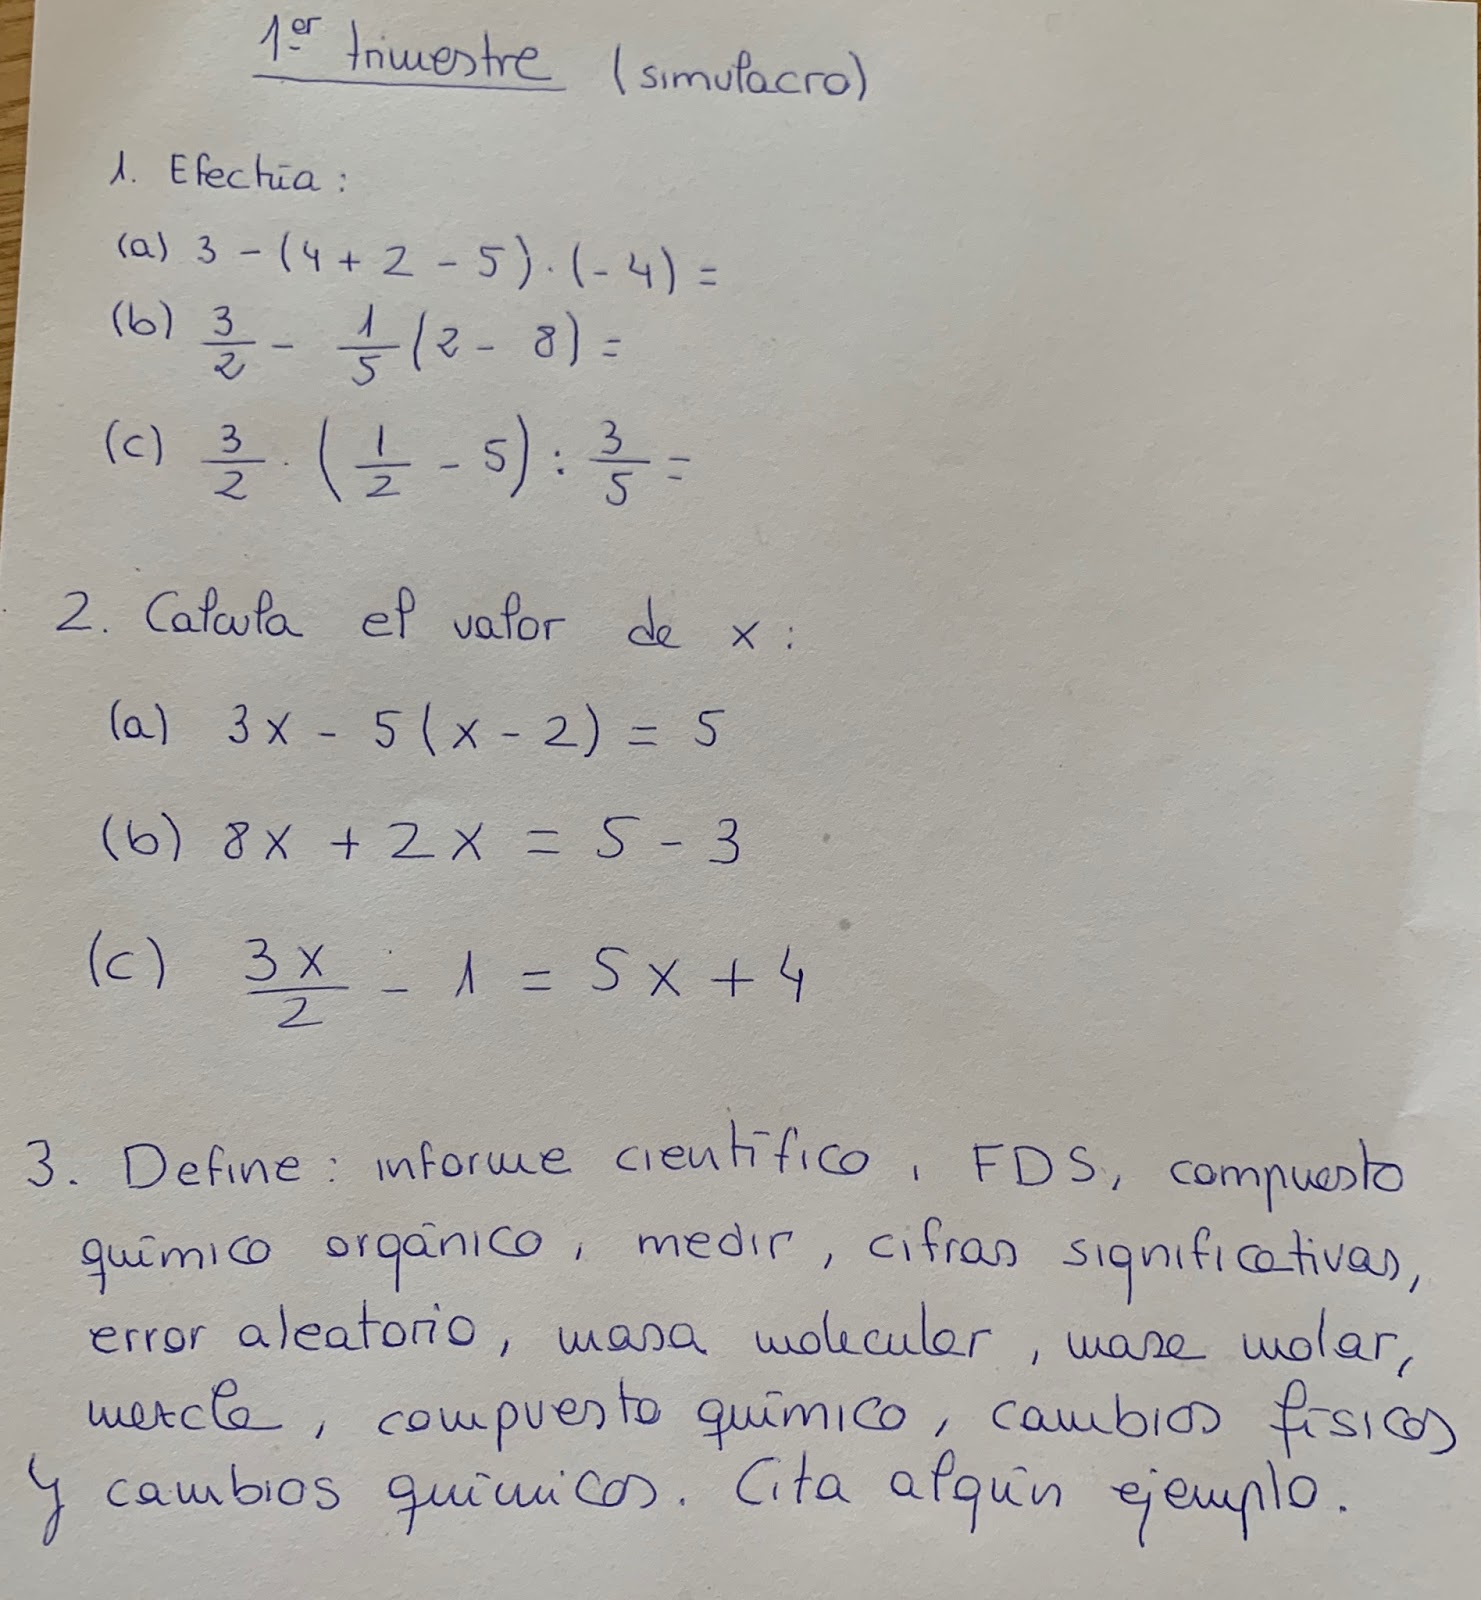 1er trimestre (simulacro)
1. Efectúa:
(a) 3 - (4 + 2 - 5) · (- 4) =
(b) 3/2 - 1/5 (2 - 8) =
(c) 3/2 · (1/2 - 5) : 3/5 =
2. Calcula el valor de x:
(a) 3x - 5(x - 2) = 5
(b) 8x + 2x = 5 - 3
(c) 3x/2 - 1 = 5x + 4
3. Define: informe científico, FDS, compuesto
químico orgánico, medir, cifras significativas,
error aleatorio, masa molecular, masa molar,
mezcla, compuesto químico, cambios físicos
y cambios químicos. Cita algún ejemplo.